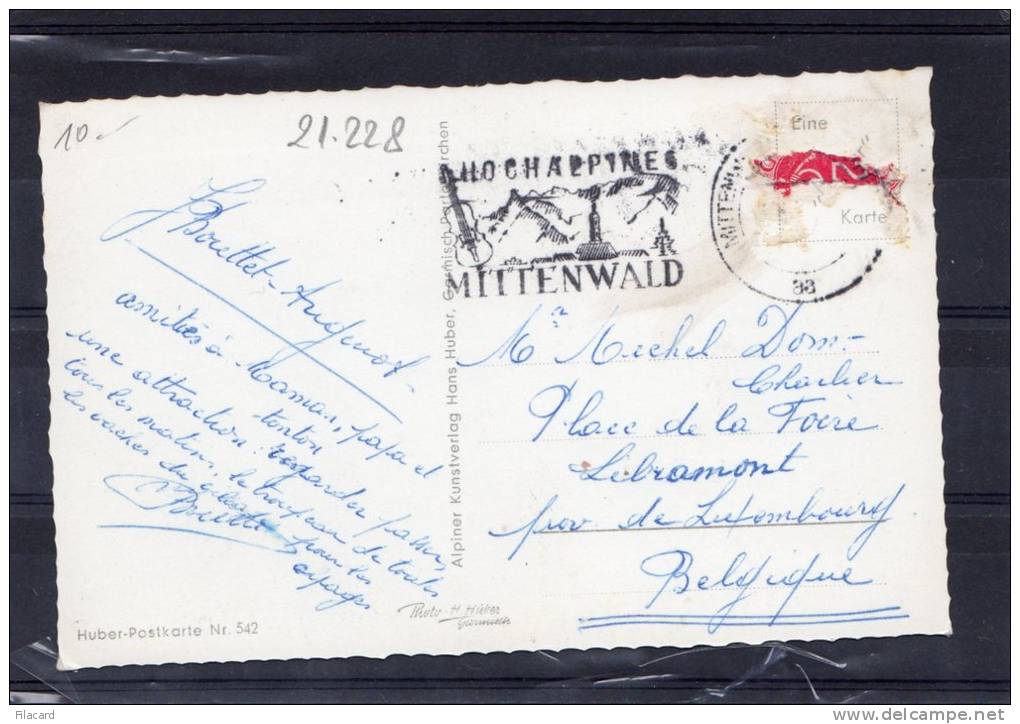 10
21.228
HOCHALPINES
MITTENWALD
MITTENW
88
Eine
Karte
amitiés à Maman, papa et
tonton
une attraction: regarder passer,
tous les matins, le troupeau de toutes
les vaches du village pour les
alpages
Mr Michel Dom-
Charlier
Place de la Foire
Libramont
prov de Luxembourg
Belgique
Alpiner Kunstverlag Hans Huber, Garmisch-Partenkirchen
Photo H. Huber
Garmisch
Huber-Postkarte Nr. 542
Filacard
delcampe.net